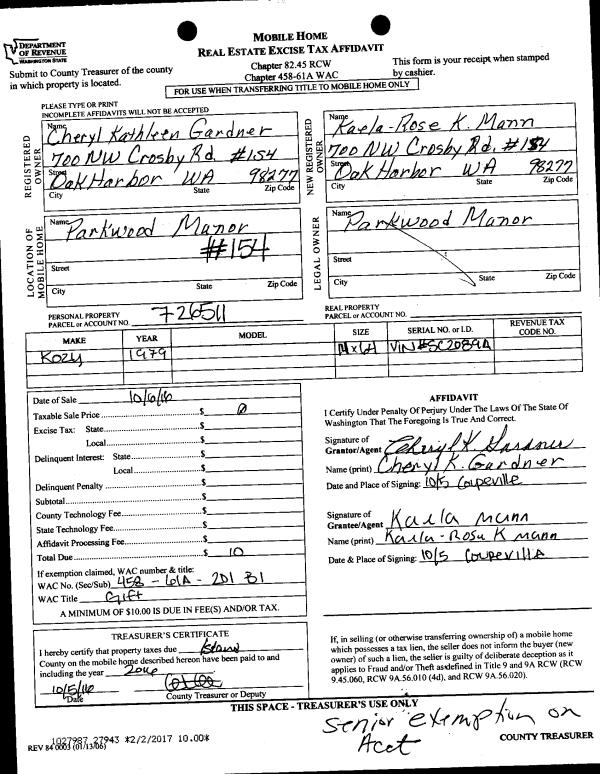 DEPARTMENT
OF REVENUE
WASHINGTON STATE
MOBILE HOME
REAL ESTATE EXCISE TAX AFFIDAVIT
Chapter 82.45 RCW
Chapter 458-61A WAC
Submit to County Treasurer of the county
in which property is located.
This form is your receipt when stamped
by cashier.
FOR USE WHEN TRANSFERRING TITLE TO MOBILE HOME ONLY
PLEASE TYPE OR PRINT
INCOMPLETE AFFIDAVITS WILL NOT BE ACCEPTED
REGISTERED
OWNER
Name Cheryl Kathleen Gardner
700 NW Crosby Rd. #154
Street
Oak Harbor WA 98277
City State Zip Code
NEW REGISTERED
OWNER
Name Kaela-Rose K. Mann
700 NW Crosby Rd. #154
Street
Oak Harbor WA 98277
City State Zip Code
LOCATION OF
MOBILE HOME
Name Parkwood Manor
#154
Street
City State Zip Code
LEGAL OWNER
Name Parkwood Manor
Street
City State Zip Code
PERSONAL PROPERTY
PARCEL or ACCOUNT NO. 726511
REAL PROPERTY
PARCEL or ACCOUNT NO.
MAKE YEAR MODEL SIZE SERIAL NO. or I.D. REVENUE TAX CODE NO.
Kozy 1979 14x64 VIN#SC2089A
Date of Sale 10/6/16
Taxable Sale Price $ 0
Excise Tax: State $
Local $
Delinquent Interest: State $
Local $
Delinquent Penalty $
Subtotal $
County Technology Fee $
State Technology Fee $
Affidavit Processing Fee $
Total Due $ 10
If exemption claimed, WAC number & title:
WAC No. (Sec/Sub) 458 - 61A - 201 B1
WAC Title Gift
A MINIMUM OF $10.00 IS DUE IN FEE(S) AND/OR TAX.
AFFIDAVIT
I Certify Under Penalty Of Perjury Under The Laws Of The State Of
Washington That The Foregoing Is True And Correct.
Signature of
Grantor/Agent Cheryl K Gardner
Name (print) Cheryl K. Gardner
Date and Place of Signing: 10/5 Coupeville
Signature of
Grantee/Agent Kaela Mann
Name (print) Kaela-Rose K Mann
Date & Place of Signing: 10/5 Coupeville
TREASURER'S CERTIFICATE
I hereby certify that property taxes due Island
County on the mobile home described hereon have been paid to and
including the year 2016
10/5/16
Date County Treasurer or Deputy
If, in selling (or otherwise transferring ownership of) a mobile home
which possesses a tax lien, the seller does not inform the buyer (new
owner) of such a lien, the seller is guilty of deliberate deception as it
applies to Fraud and/or Theft as defined in Title 9 and 9A RCW (RCW
9.45.060, RCW 9A.56.010 (4d), and RCW 9A.56.020).
THIS SPACE - TREASURER'S USE ONLY
senior exemption on
Acct
1027987 27943 *2/2/2017 10.00*
REV 84 0003 (01/13/06)
COUNTY TREASURER